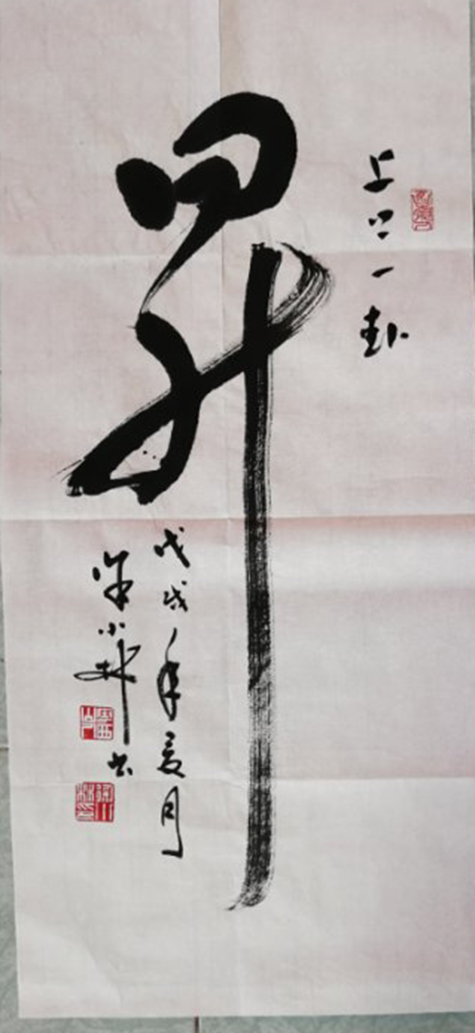 上上一卦
昇
戊戌年夏月
徐小林书